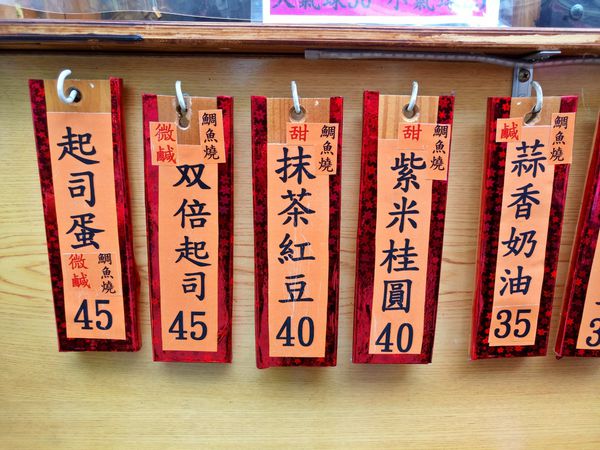 起司蛋
微鹹
鯛魚燒
45
微鹹
鯛魚燒
双倍起司
45
甜
鯛魚燒
抹茶紅豆
40
甜
鯛魚燒
紫米桂圓
40
鹹
鯛魚燒
蒜香奶油
35